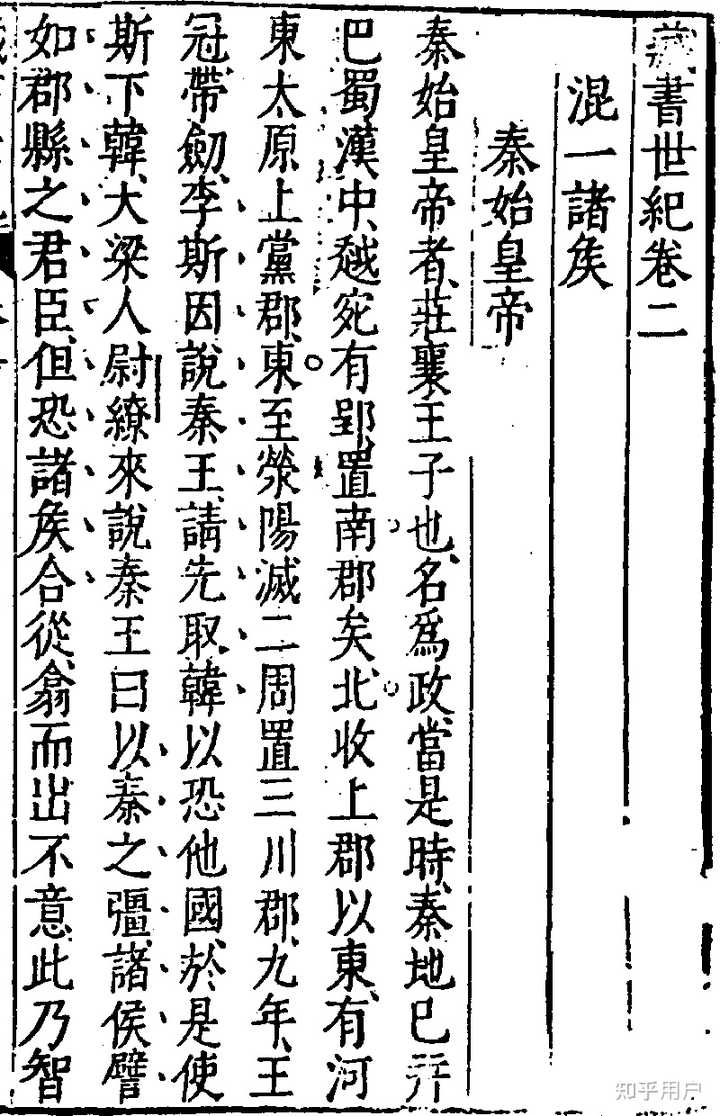 藏書世紀卷二
混一諸矦
秦始皇帝
秦始皇帝者、莊襄王子也、名為政、當是時、秦地已并
巴蜀漢中、越宛有郢、置南郡矣、北收上郡以東、有河
東太原上黨郡、東至滎陽滅二周置三川郡、九年、王
冠、帶劒、李斯因說秦王、請先取韓以恐他國、於是使
斯下韓、大梁人尉繚來說秦王曰以秦之彊、諸侯譬
如郡縣之君臣、但恐諸矦合從、翕而出不意此乃智
知乎用户